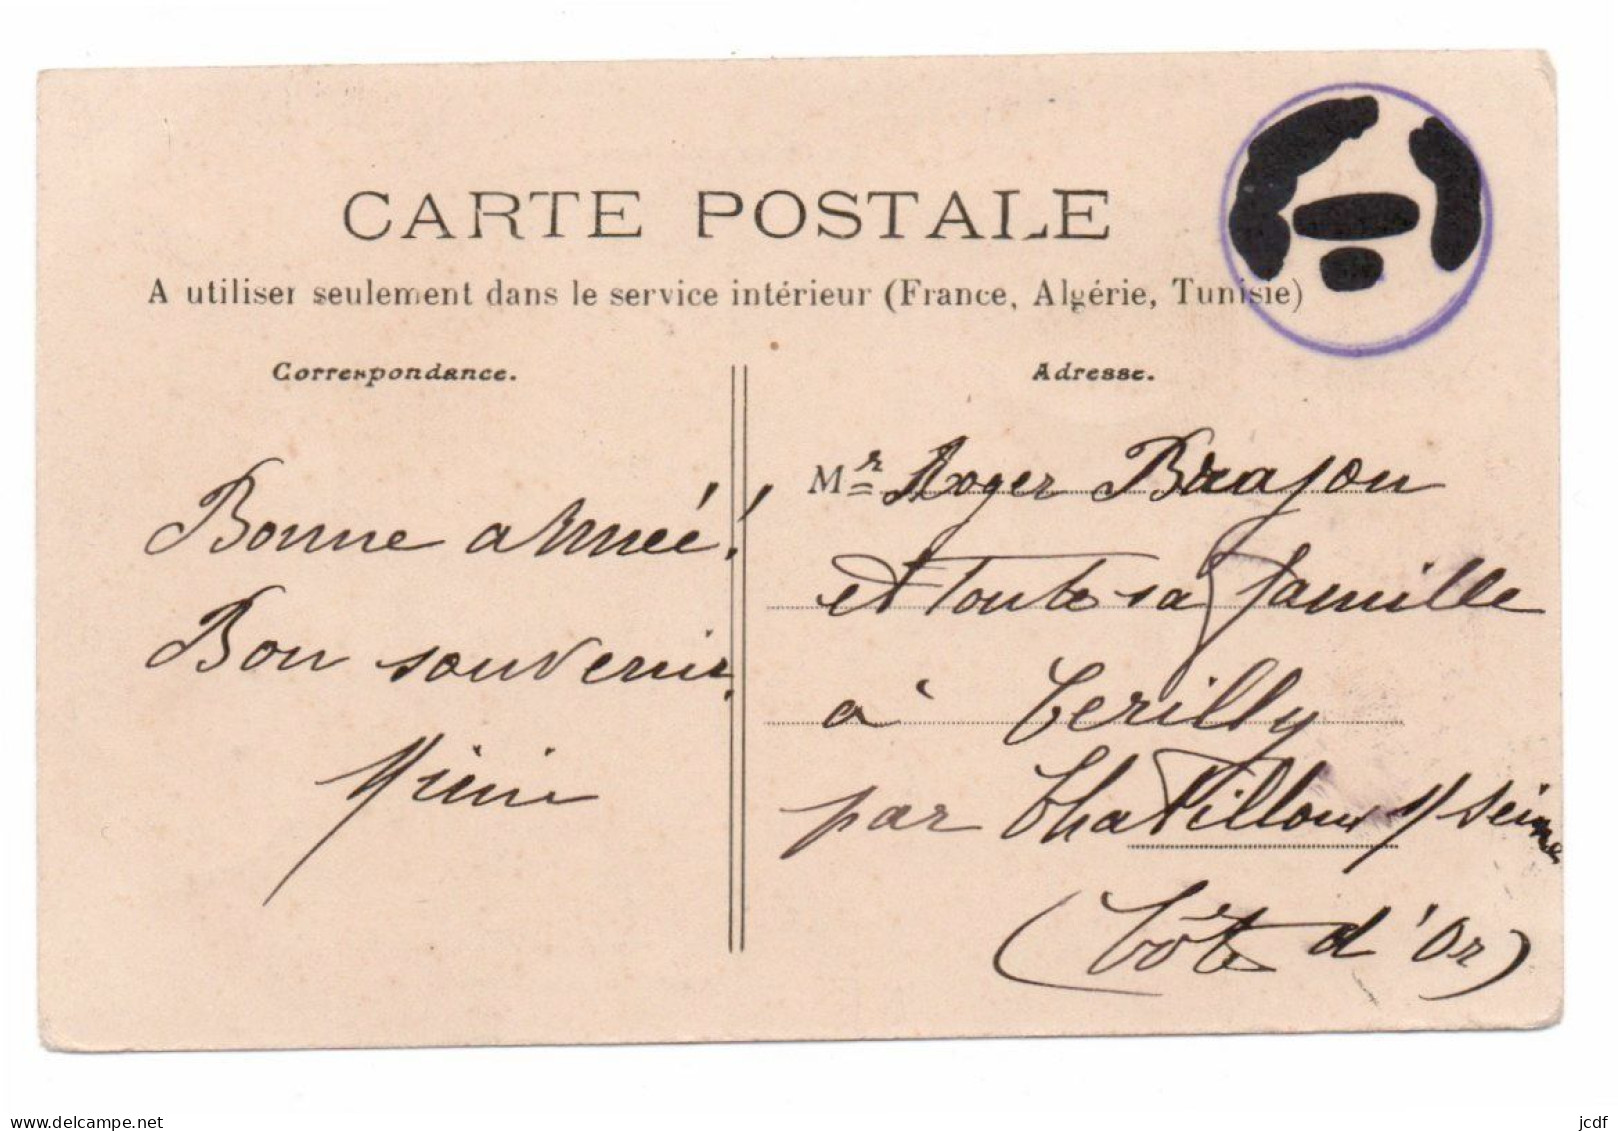 CARTE POSTALE
A utiliser seulement dans le service intérieur (France, Algérie, Tunisie)
Correspondance.
Bonne année!
Bon souvenir.
Mimi
Adresse.
Mr Roger Brajon
et toute sa famille
à Cerilly
par Chatillon s/ Seine
(Côte d'Or)
delcampe.net
jcdf